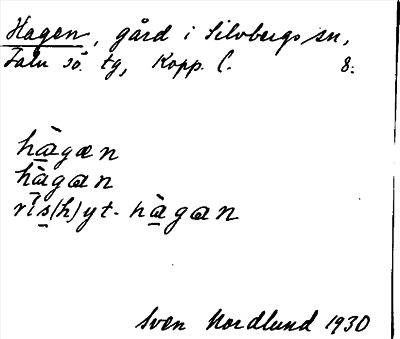 Hagen, gård i Silvbergs sn,
Falu sö. tg, Kopp. l. 8.
hàgæn
hàgan
rı̄s(h)yt- hàgan
Sven Nordlund 1930